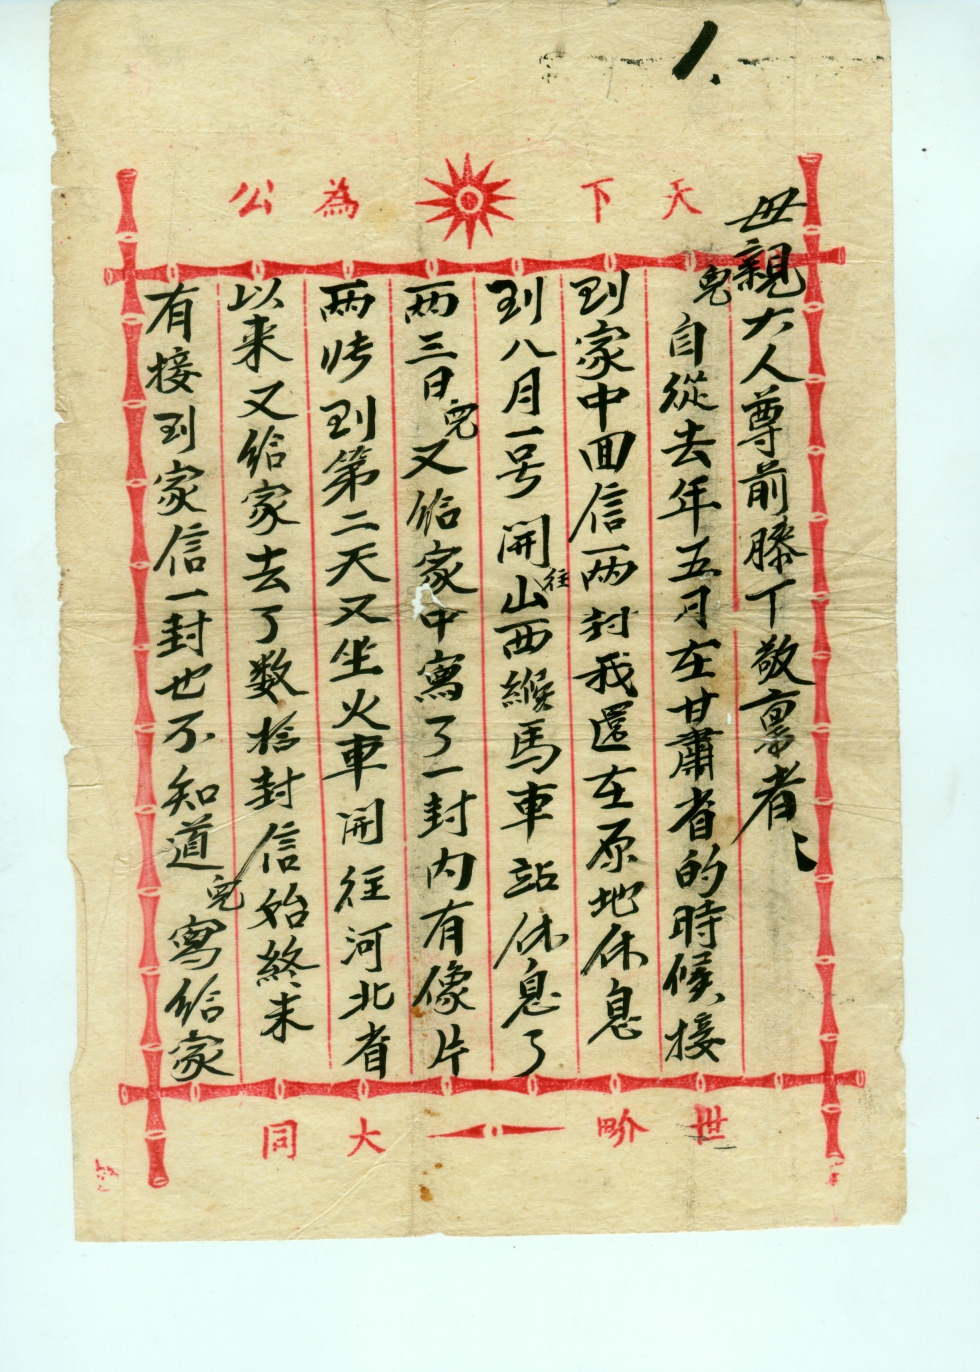 天下為公
母親大人尊前膝下敬禀者、
兒自從去年五月在甘肅省的時候、接
到家中回信一兩封我還在原地休息
到八月一号開往山西緱馬車站休息了
兩三日兒又給家中寫了一封内有像片
兩张到第二天又坐火車開往河北省
以来又給家去了数拾封信始終未
有接到家信一封也不知道兒寫給家
世界大同